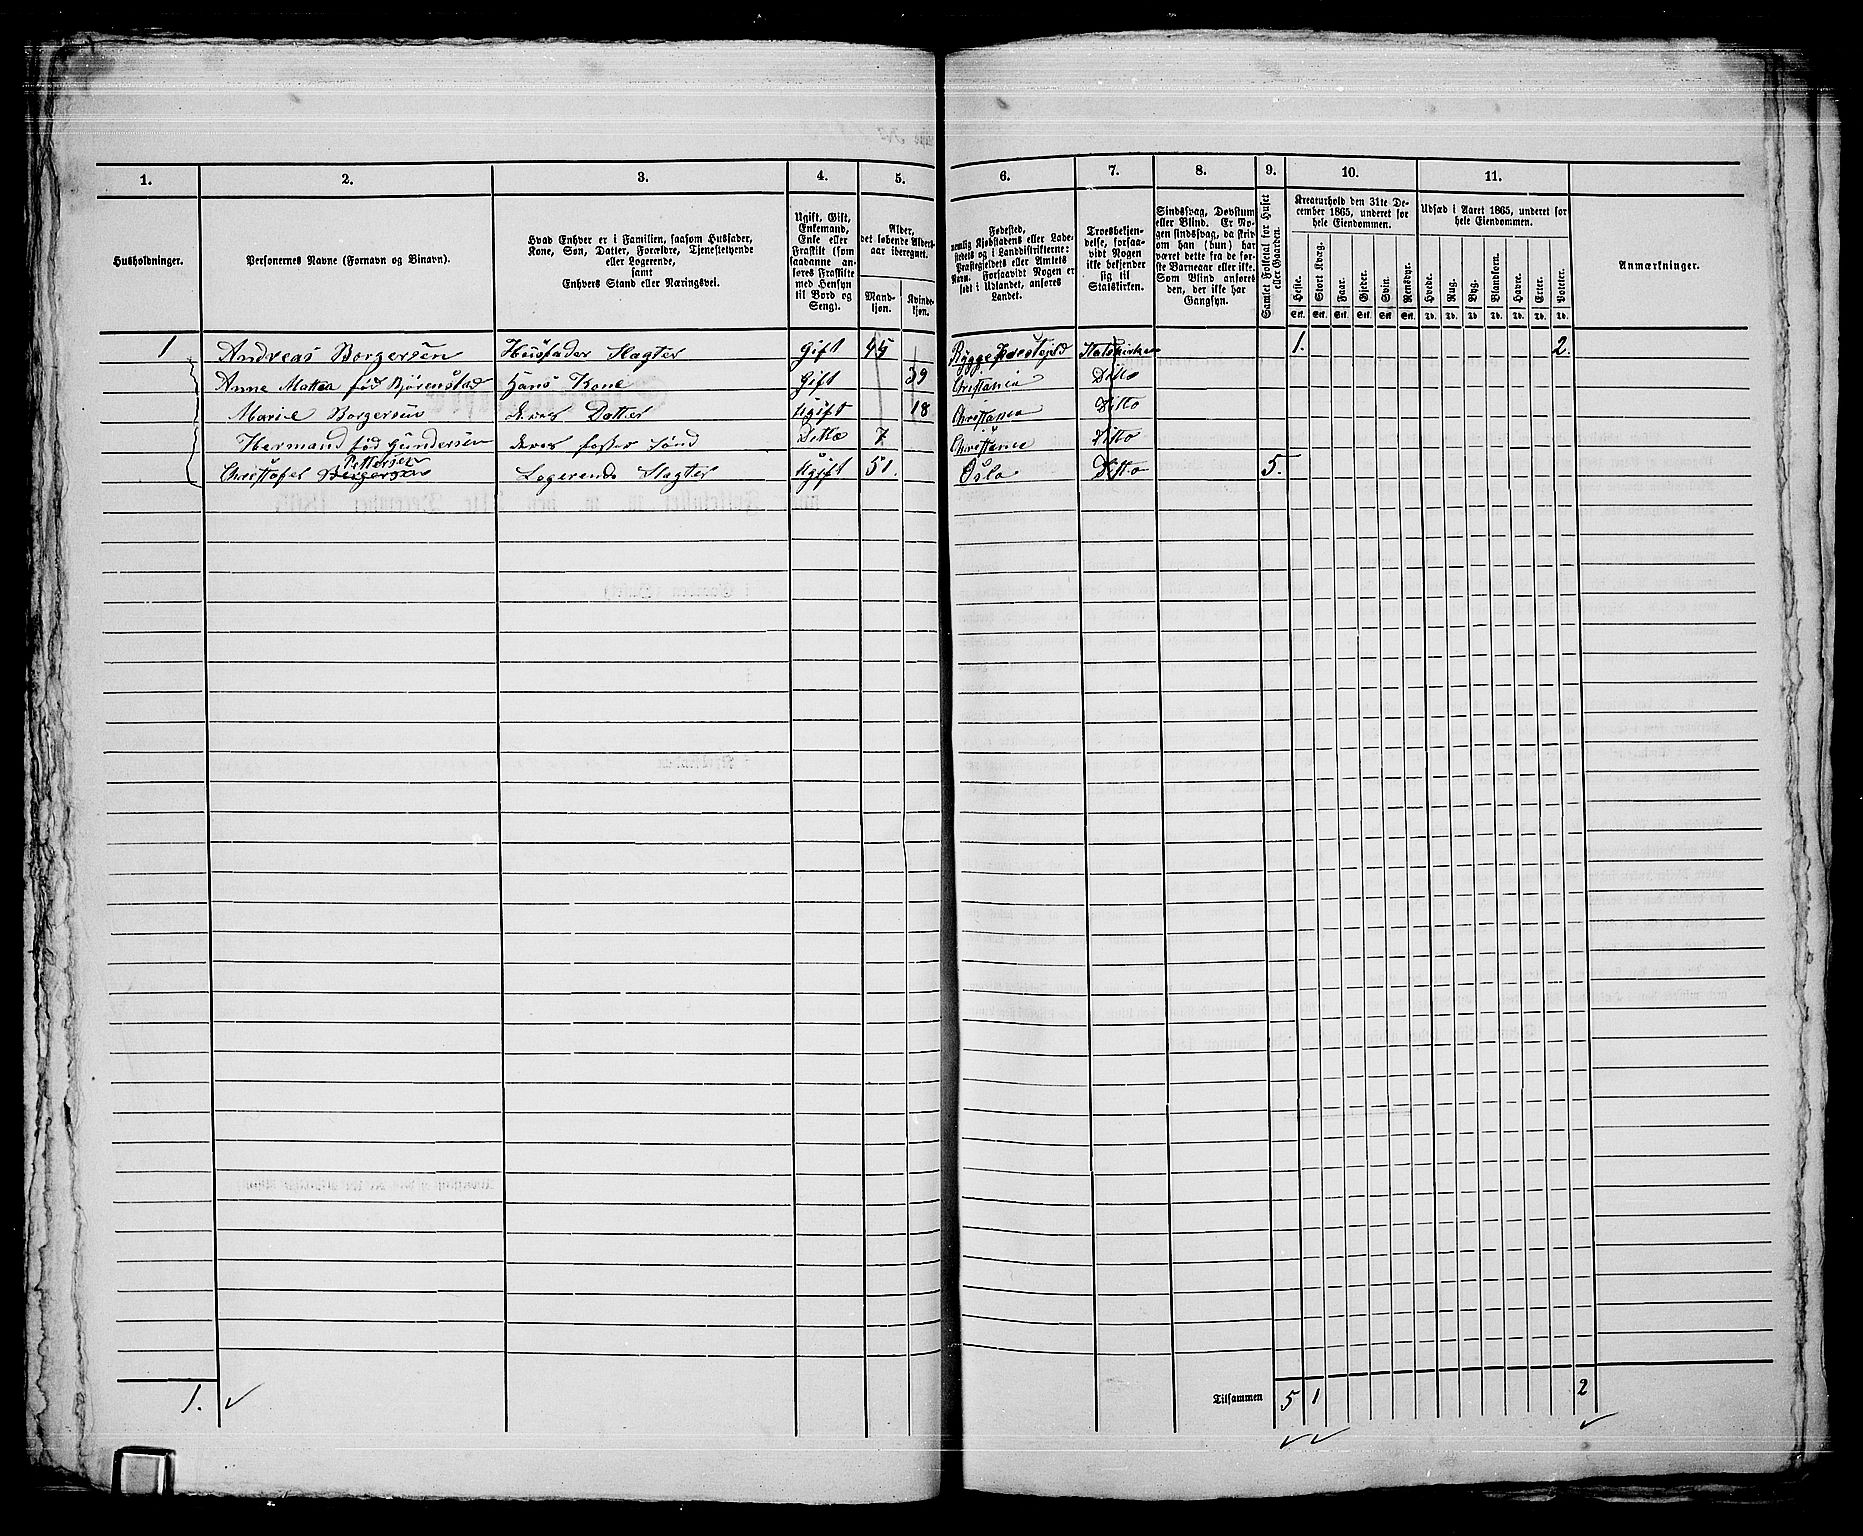 1. 2. 3. 4. 5. 6. 7. 8. 9. 10. 11.
Husholdninger.
Personernes Navne (Fornavn og Binavn).
Hvad Enhver er i Familien, saasom Husfader,
Kone, Søn, Datter, Forældre, Tjenestetyende
eller Logerende,
samt
Enhvers Stand eller Næringsvei.
Ugift, Gift,
Enkemand,
Enke eller
Fraskilt (som
saadanne an-
føres Fraskilte
med Hensyn
til Bord og
Seng).
Alder,
det løbende Alders-
aar iberegnet.
Mand-
kjøn.
Kvinde-
kjøn.
Fødested,
nemlig Kjøbstadens eller Lade-
stedets og i Landdistrikterne:
Præstegjeldets eller Amtets
Navn. Forsaavidt Nogen er
født i Udlandet, anføres
Landet.
Troesbekjen-
delse, forsaa-
vidt Nogen
ikke bekjender
sig til
Statskirken.
Sindssvag, Døvstum
eller Blind. Er No-
gen sindssvag, da skriv
om han (hun) har
været dette fra de før-
ste Barneaar eller ikke.
Som Blind anføres
den, der ikke har
Gangsyn.
Samlet Folketal for Huset
eller Gaarden.
Kreaturhold den 31te De-
cember 1865, underet for
hele Eiendommen.
Heste. Stort Kvæg. Faar. Gjeder. Svin. Rensdyr.
Stk. Stk. Stk. Stk. Stk. Stk.
Udsæd i Aaret 1865, underet for
hele Eiendommen.
Hvede. Rug. Byg. Blandkorn. Havre. Erter. Poteter.
Td. Td. Td. Td. Td. Td. Td.
Anmærkninger.
1 Andreas Borgersen Husfader Slagter Gift 45 Rygge Præstegjeld Statskirken 1. 2.
Anne Mattea fød Bjørenstad Hans Kone Gift 39 Christiania Ditto
Marie Borgersen deres Datter Ugift 18 Christiania Ditto
Hermand fød Gundersen deres foster sønd Ditto 7 Christiania Ditto
Pettersen
Christofer Borgersen Logerende Slagter Ugift 51. Oslo Ditto 5.
1. Tilsammen 5 1 2